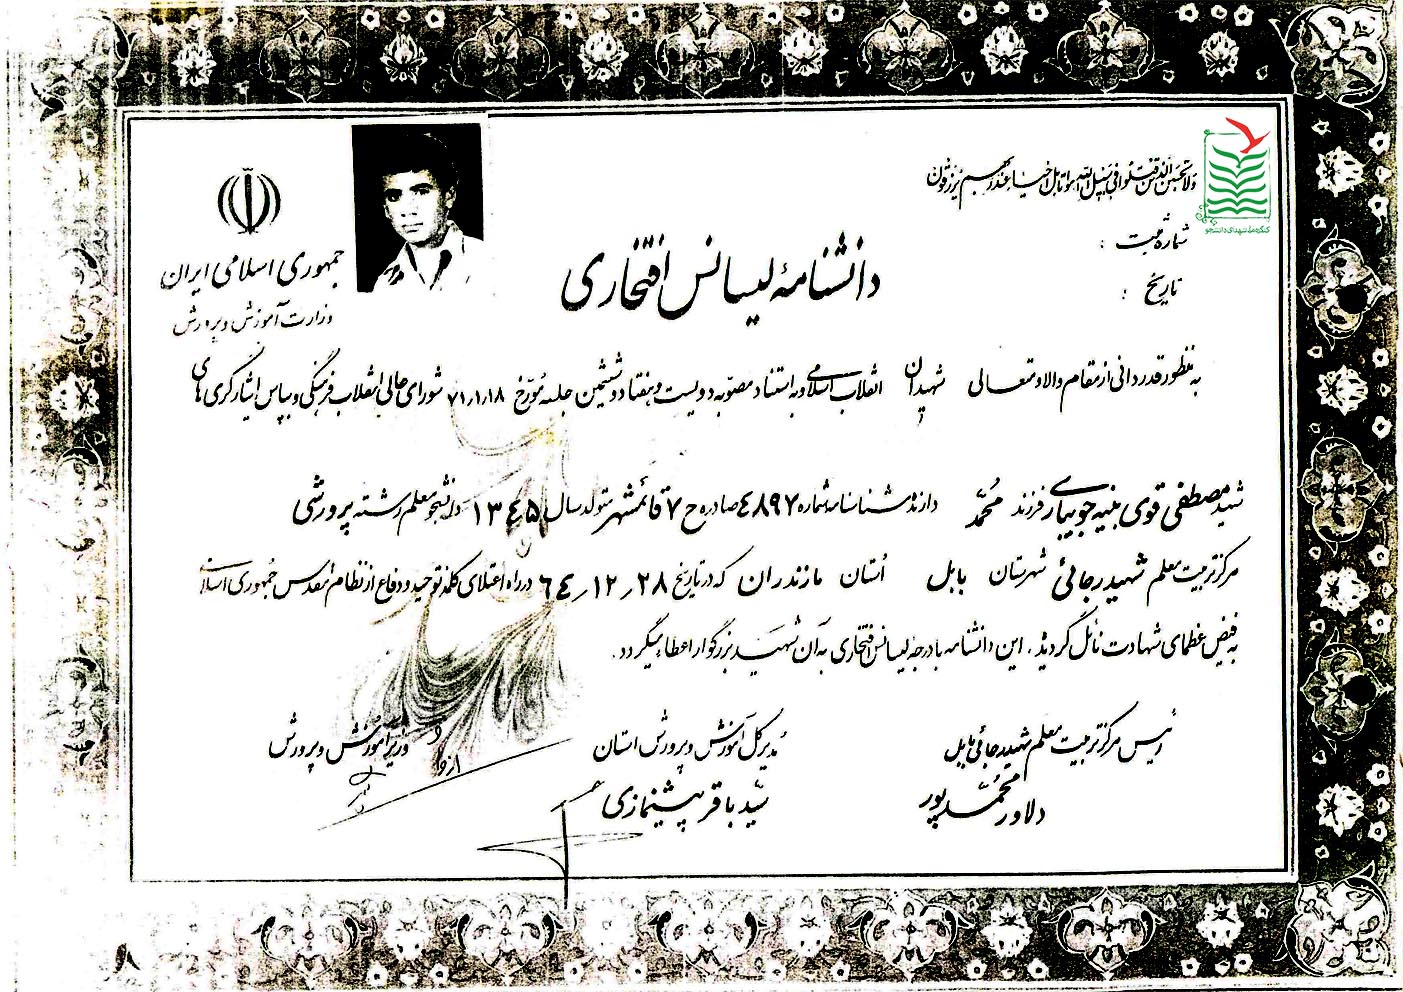 ولا تحسبن الذین قتلوا فی سبیل الله امواتا بل احیاء عند ربهم یرزقون
کنگره ملی شهدای دانشجو
شماره ثبت :
تاریخ :
جمهوری اسلامی ایران
وزارت آموزش و پرورش
دانشنامهٔ لیسانس افتخاری
به منظور قدردانی از مقام والا و متعالی شهیدان انقلاب اسلامی و به استناد مصوبه دویست و هفتاد و ششمین جلسه مورخ ۷۱٫۱٫۱۸ شورای عالی انقلاب فرهنگی و بپاس ایثارگری های
شهید مصطفی قوی بنیه جویباری فرزند محمّد دارنده شناسنامه شماره ۴۸۹۷ صادره ح ۷ قائمشهر متولد سال ۱۳۴۵ دانشجو معلم رشته پرورشی
مرکز تربیت معلم شهید رجائی شهرستان بابل استان مازندران که در تاریخ ۶۴٫۱۲٫۲۸ در راه اعتلای کلمه توحید و دفاع از نظام مقدس جمهوری اسلامی
به فیض عظمای شهادت نائل گردید، این دانشنامه با درجه لیسانس افتخاری به آن شهید بزرگوار اعطاء میگردد.
رئیس مرکز تربیت معلم شهید رجائی بابل
دلاور محمّدپور
مدیرکل آموزش و پرورش استان
سیّد باقر پیشنمازی
وزیر آموزش و پرورش